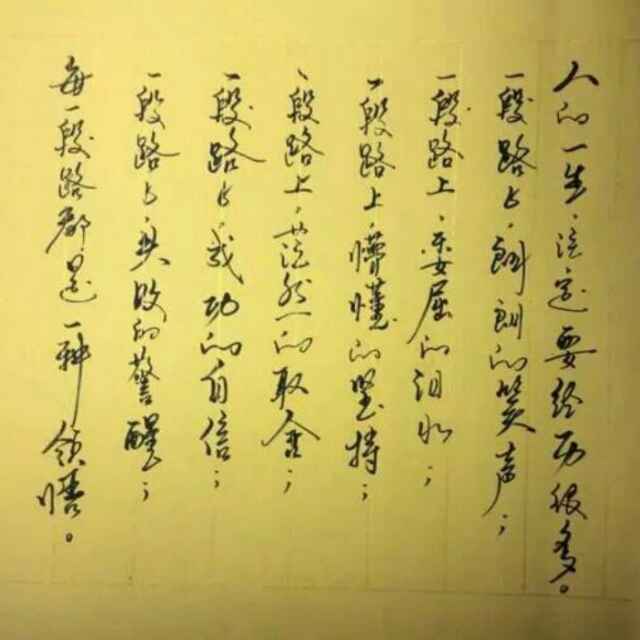 人的一生，注定要经历很多。
一段路上，朗朗的笑声；
一段路上，委屈的泪水；
一段路上，懵懂的坚持；
一段路上，茫然的取舍；
一段路上，成功的自信；
一段路上，失败的警醒；
每一段路都是一种领悟。